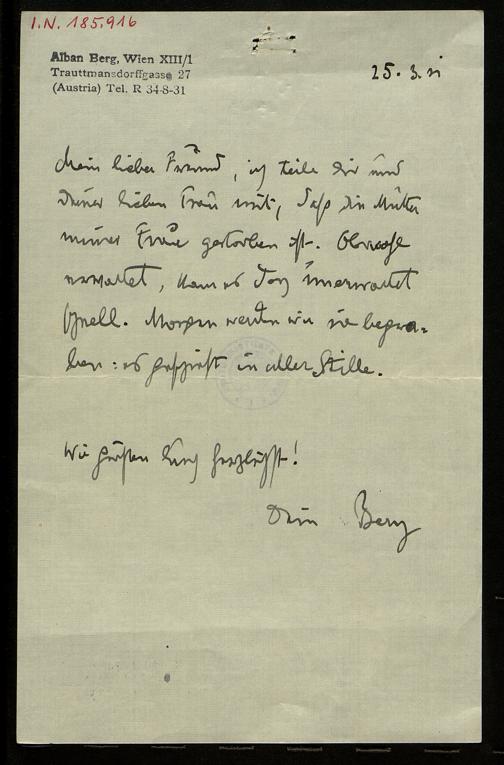 I.N. 185.916
Alban Berg, Wien XIII/1
Trauttmansdorffgasse 27
(Austria) Tel. R 34-8-31
25. 3.
Mein lieber Freund, ich teile Dir und
Deiner lieben Frau mit, daß die Mutter
meiner Frau gestorben ist. Obwohl
erwartet, kam es doch unerwartet
schnell. Morgen werden wir sie begra-
ben: es geschieht in aller Stille.
Wir grüßen Euch herzlichst!
Dein Berg